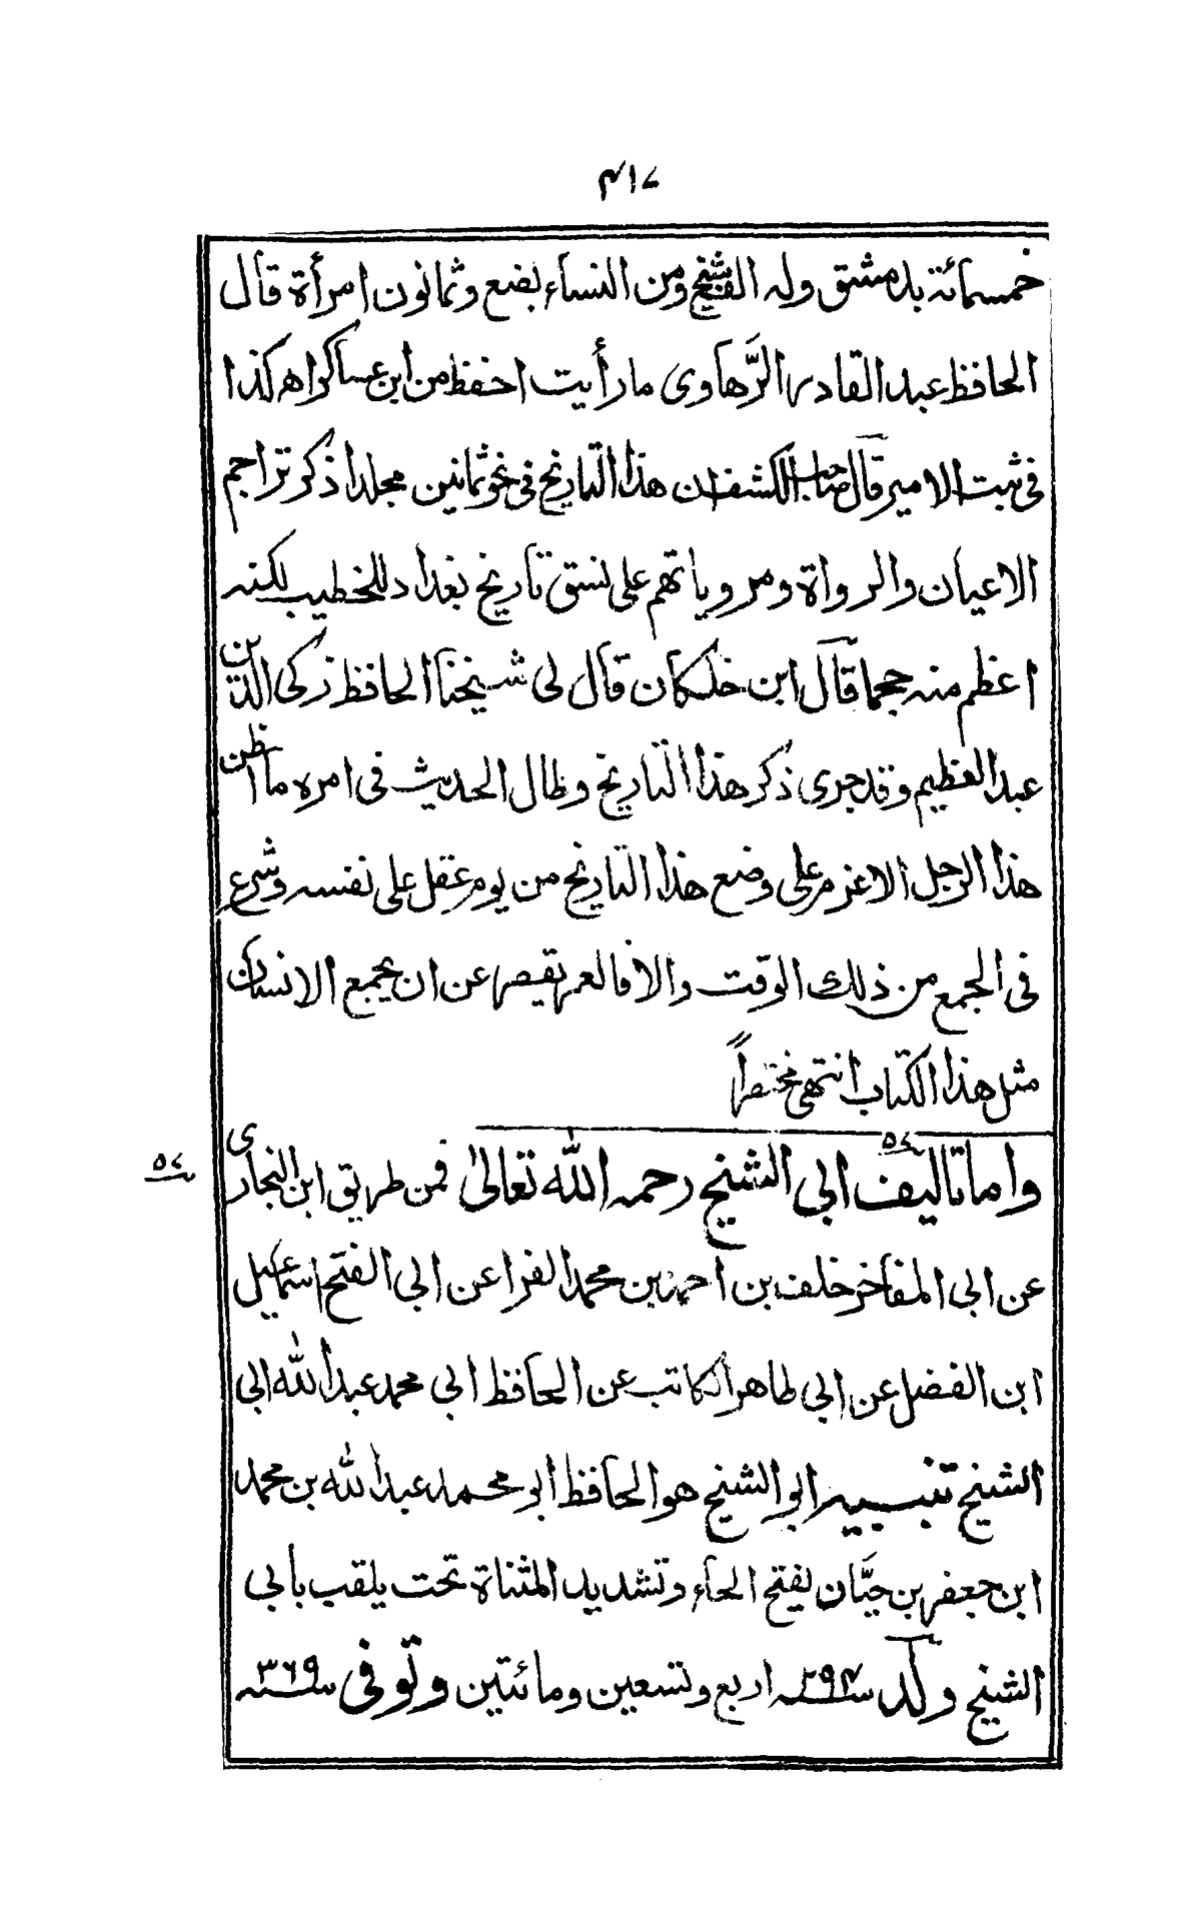 ٤١٧
خمسمائة بدمشق وله الف شيخ ومن النساء بضع وثمانون امرأة قال
الحافظ عبد القادر الرَّهاوى مارأيت احفظ من ابن عساكر اهـ كذا
فى ثبت الامير قال صاحب الكشف ان هذا التاريخ فى نحو ثمانين مجلدا ذكر تراجم
الاعيان والرواة ومروياتهم على نسق تاريخ بغداد للخطيب لكنه
اعظم منه حجما قال ابن خلكان قال لى شيخنا الحافظ زكى الدين
عبد العظيم وقد جرى ذكر هذا التاريخ وطال الحديث فى امره ما اظن
هذا الرجل الا عزم على وضع هذا التاريخ من يوم عقل على نفسه وشرع
فى الجمع من ذلك الوقت والا فالعمر يقصر عن ان يجمع الانسان
مثل هذا الكتاب انتهى مختصراً
٥٧
واما تاليف ابى الشيخ رحمه الله تعالىٰ فمن طريق ابن النجارى
٥٧
عن ابى المفاخر خلف بن احمد بن محمد الفرا عن ابى الفتح اسماعيل
ابن الفضل عن ابى طاهر الكاتب عن الحافظ ابى محمد عبد الله ابى
الشيخ تنبيه ابو الشيخ هو الحافظ ابو محمد عبد الله بن محمد
ابن جعفر بن حيَّان بفتح الحاء وتشديد المثناة تحت يلقب بأبى
الشيخ ولد سنه ٢٩٤ اربع وتسعين ومائتين وتوفى سنه ٣٦٩